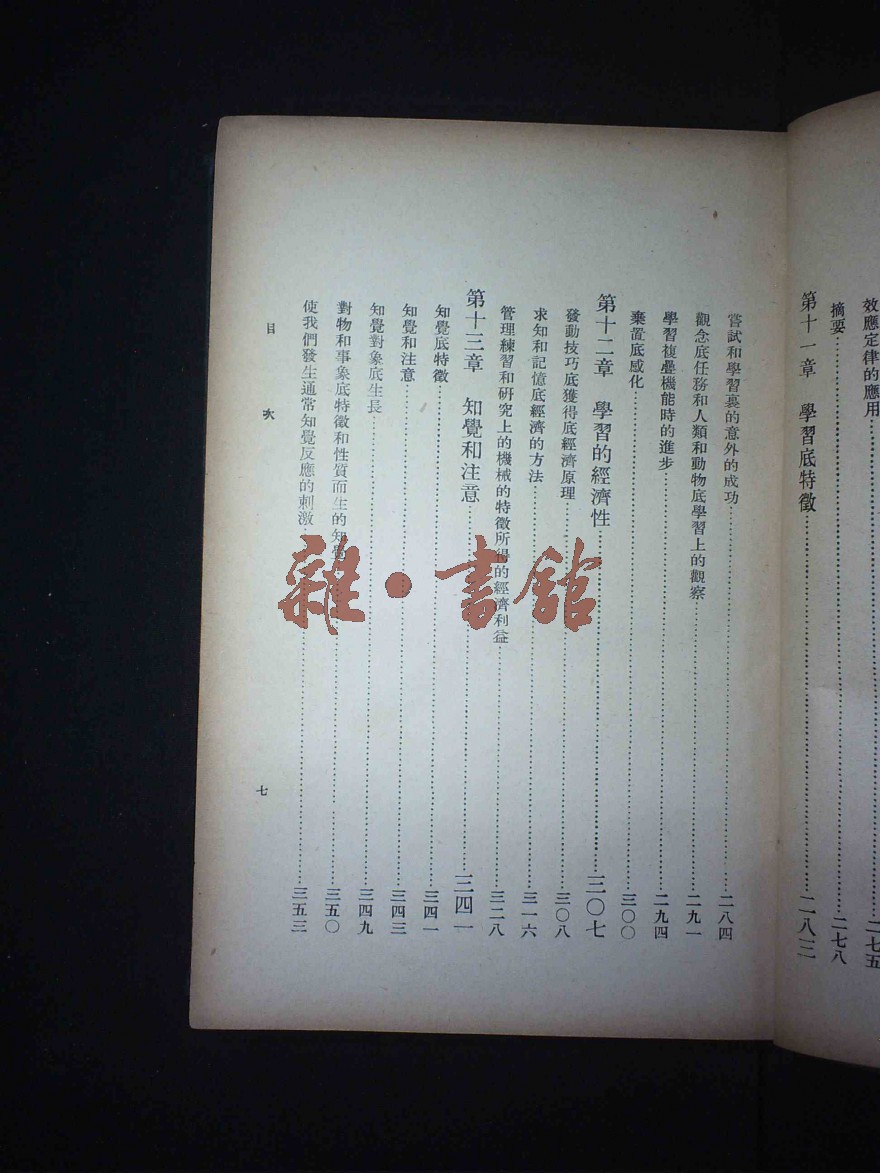 效應定律的應用……二七五
摘要……二七八
第十一章　學習底特徵……二八三
嘗試和學習裏的意外的成功……二八四
觀念底任務和人類和動物底學習上的觀察……二九一
學習複疊機能時的進步……二九四
棄置底感化……三〇〇
第十二章　學習的經濟性……三〇七
發動技巧底獲得底經濟原理……三〇八
求知和記憶底經濟的方法……三一六
管理練習和研究上的機械的特徵所得的經濟利益……三二八
第十三章　知覺和注意……三四一
知覺底特徵……三四一
知覺和注意……三四三
知覺對象底生長……三四九
對物和事象底特徵和性質而生的知覺……三五〇
使我們發生通常知覺反應的刺激……三五三
目次
七
雜·書館